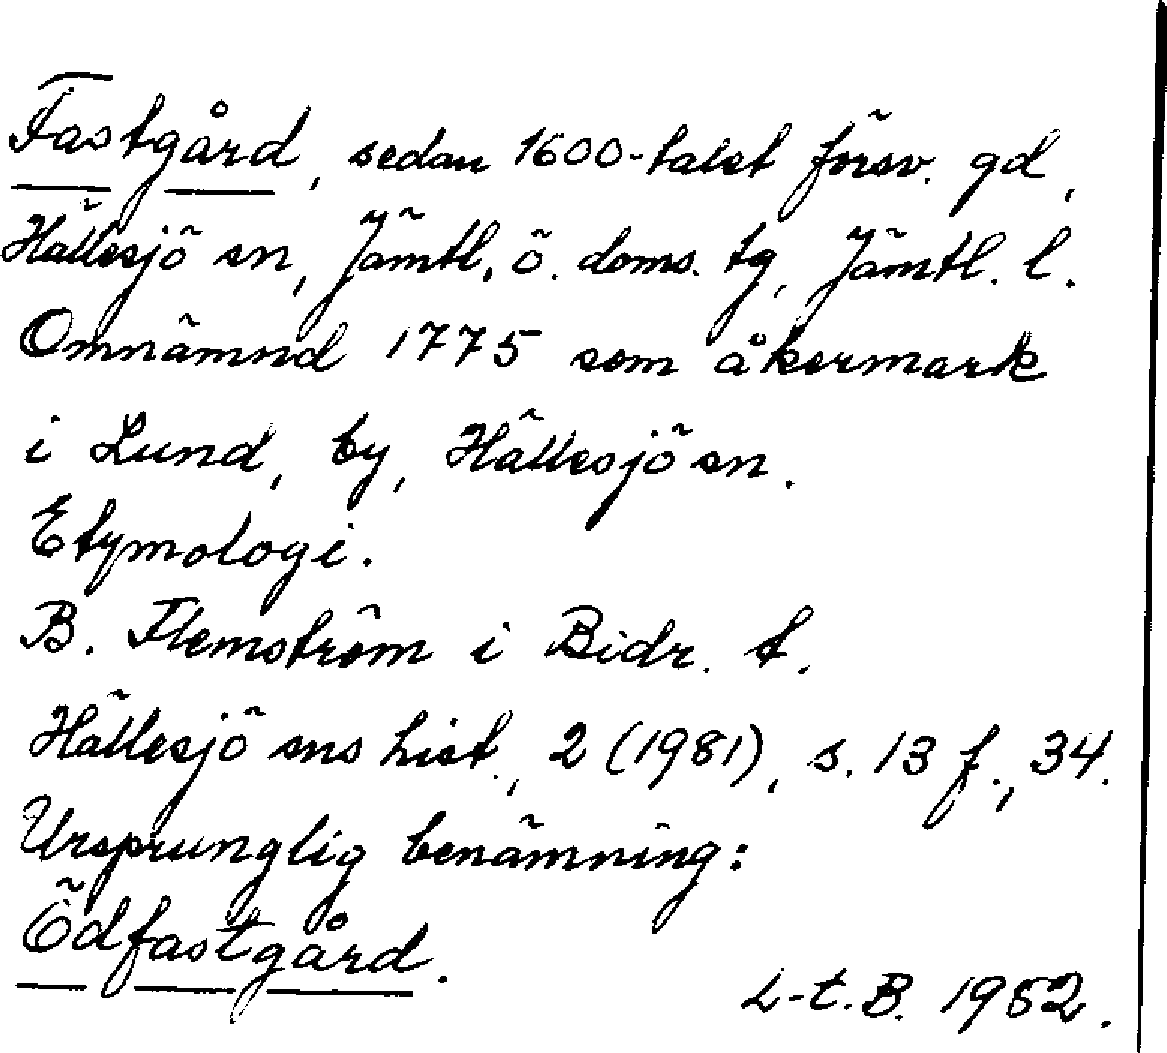 Fastgård, sedan 1600-talet försv. gd,
Hällesjö sn, Jämtl. ö. doms. tg, Jämtl. l.
Omnämnd 1775 som åkermark
i Lund, by, Hällesjö sn.
Etymologi.
B. Flemström i Bidr. t.
Hällesjö sns hist., 2 (1981), s. 13 f., 34.
Ursprunglig benämning:
Ödfastgård.
L-t. B. 1982.